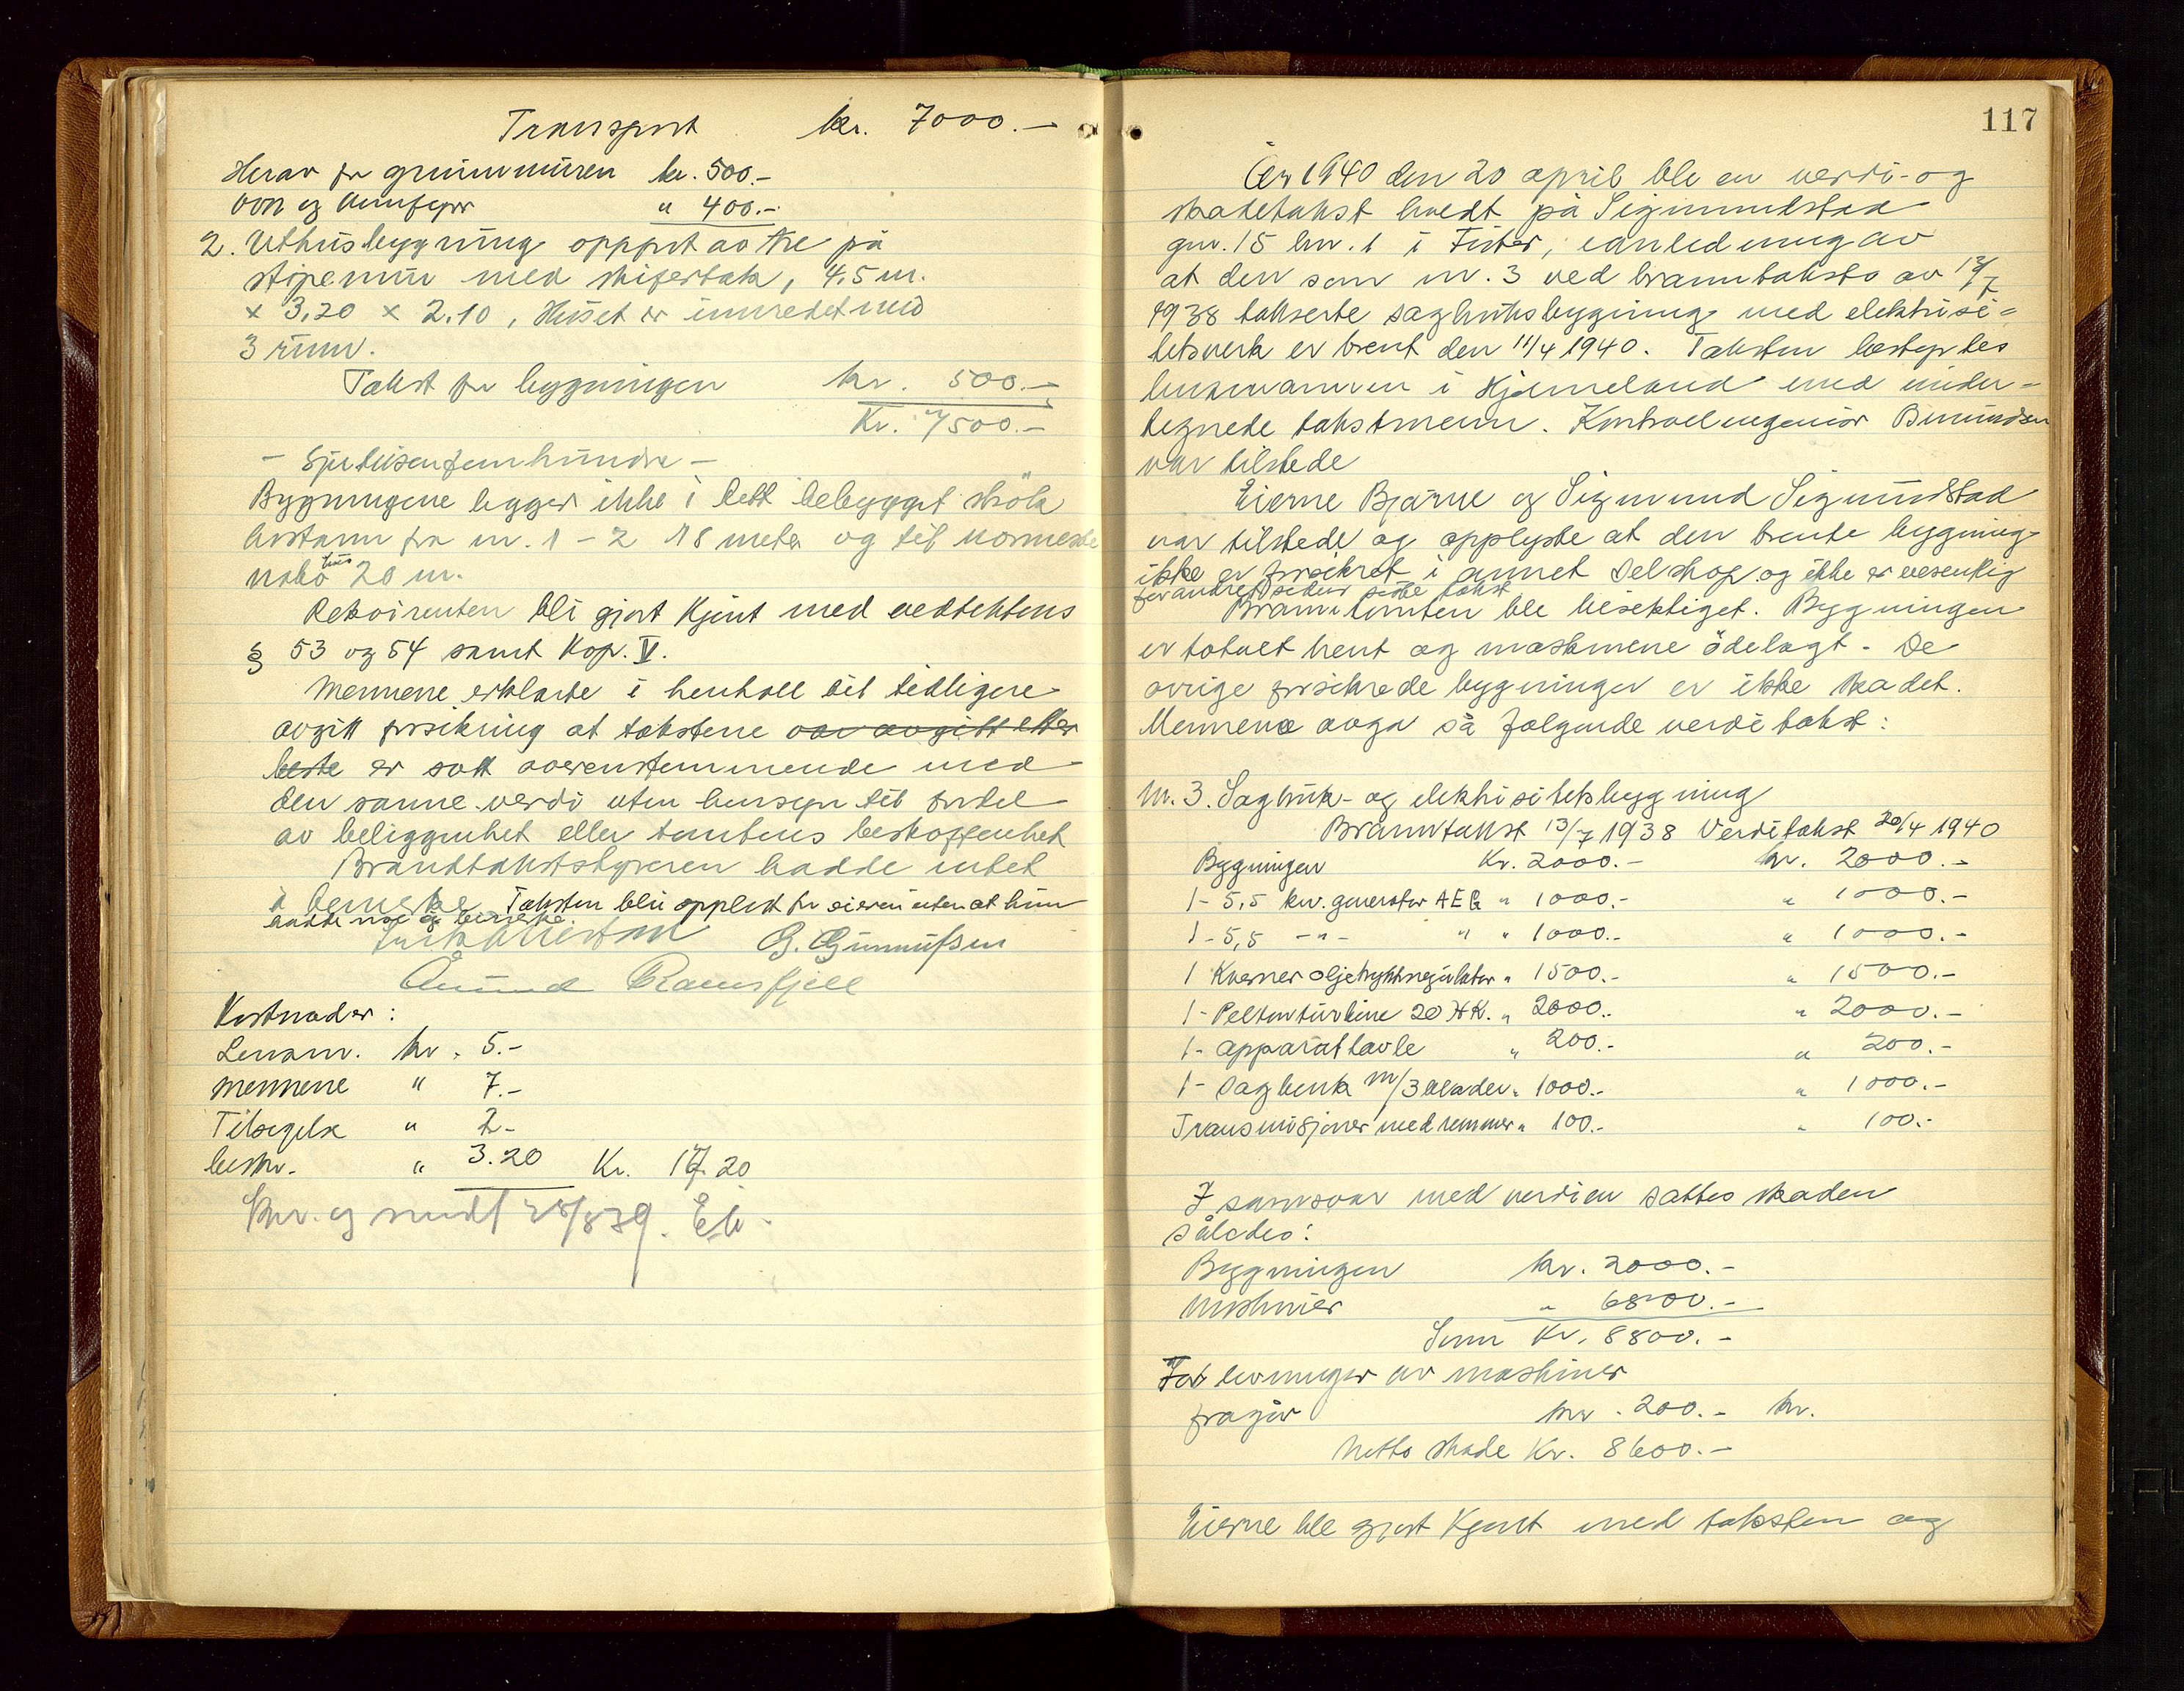 Transport kr. 7000.-
Herav for grunnmuren kr. 500.-
ovn og komfyr " 400.-
2. Uthusbygning oppført av tre på
stipemur med skifertak, 4,5 m.
x 3,20 x 2.10, Huset er innredet med
3 rum.
Takst for bygningen kr. 500.-
Kr. 7500.-
- Sjutusenfemhundre -
Bygningene legger ikke i tett bebygget strök
Avstann fra nr. 1 - 2 18 meter og til nærmeste
nabo hus 20 m.
Rekvirenten bli gjort kjent med vedtektens
§ 53 og 54 samt Kap. V.
Mennene erklærte i henhold til tidligere
avgitt forsikring at takstene var avgitt etter
beste er satt overenstemmende med
den sanne verdi uten hensyn til fordel
av beliggenhet eller tomtens beskaffenhet
Branntakstbestyreren hadde intet
å bemerke Taksten blei opplest for eieren uten at hun
hadde noe å bemerke.
G. Gunnufsen
Åmund Ramsfjell
Kostnader:
Lensm. kr. 5.-
Mennene " 7.-
Tilsigelse " 2-
beskr. " 3.20 Kr. 17.20
Skr. og sendt 28/8 39. Eli.
117
År 1940 den 20 april ble en verdi- og
skadetakst holdt på Sigmundstad
gnr. 15 bnr. 1 i Fister, i anledning av
at den som nr. 3 ved branntakst av 13/7
1938 takserte sagbruksbygning med elektrisi=
tetsverk er brent den 11/4 1940. Taksten bestyrtes
lensmannen i Hjelmeland med under=
tegnede takstmenn. Kontrollingeniör
var tilstede
Eierne Bjarne og Sigmund Sigmundstad
var tilstede og opplyste at den brente bygning
ikke er forsikret i annet selskap og ikke er vesentlig
forandret siden siste takst
Branntomten ble besiktiget. Bygningen
er totalt brent og maskinene ödelagt. De
övrige forsikrede bygninger er ikke skadet.
Mennene avga så følgende verditakst:
Nr. 3. Sagbruk- og elektrisitetsbygning
Branntakst 13/7 1938 Verditakst 20/4 1940
Bygningen Kr. 2000.- kr. 2000.-
1- 5,5 kw. generator AEG " 1000.- " 1000.-
1- 5,5 -"- " " 1000.- " 1000.-
1 Kværner oljetrykkregulator " 1500.- " 1500.-
1- Peltonturbine 20 HK. " 2000.- " 2000.-
1- apparattavle " 200.- " 200.-
1- sagbenk m/3 blader " 1000.- " 1000.-
Transmisjoner med remmer " 100.- " 100.-
I samsvar med verdien sattes skaden
således:
Bygningen kr. 2000.-
Maskiner " 6800.-
Sum Kr. 8800.-
For levninger av maskiner
fragår kr. 200.- kr.
Netto skade Kr. 8600.-
Eierne ble gjort kjent med taksten og